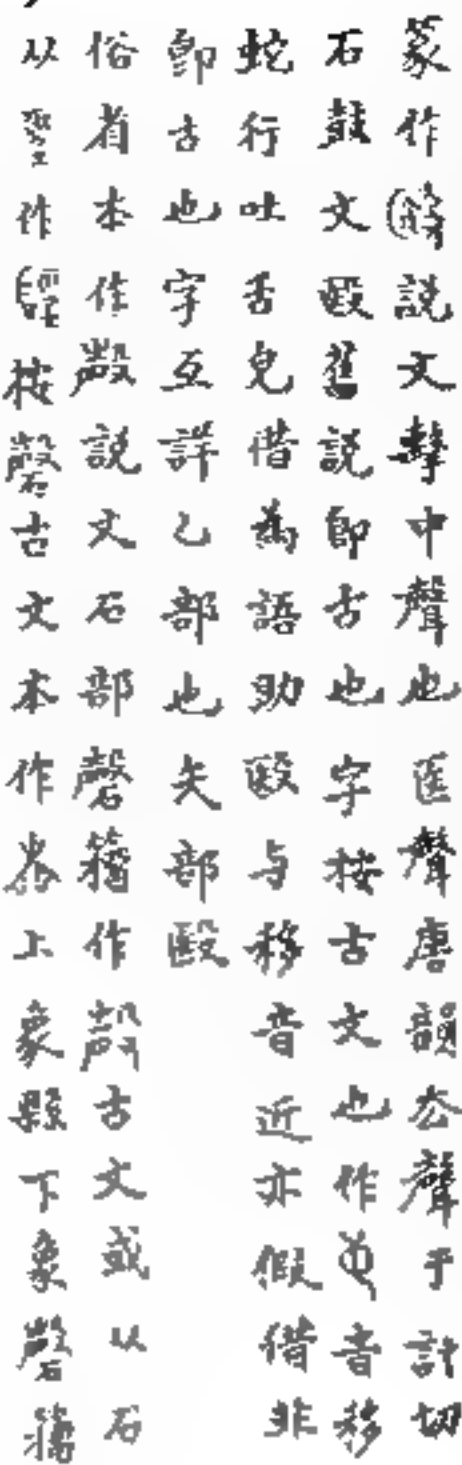 篆作説文擊中聲也医聲唐韻去聲于計切
石鼓文殹舊説卽古也字按古文也作音移
蛇行吐舌皃借為語助殹与移音近亦假借非
卽古也字互詳乁部也矢部医殳
俗者本作殸説文石部磬籀作殸古文或以石
从巠作硜按磬古文本作上象縣下象磬籀